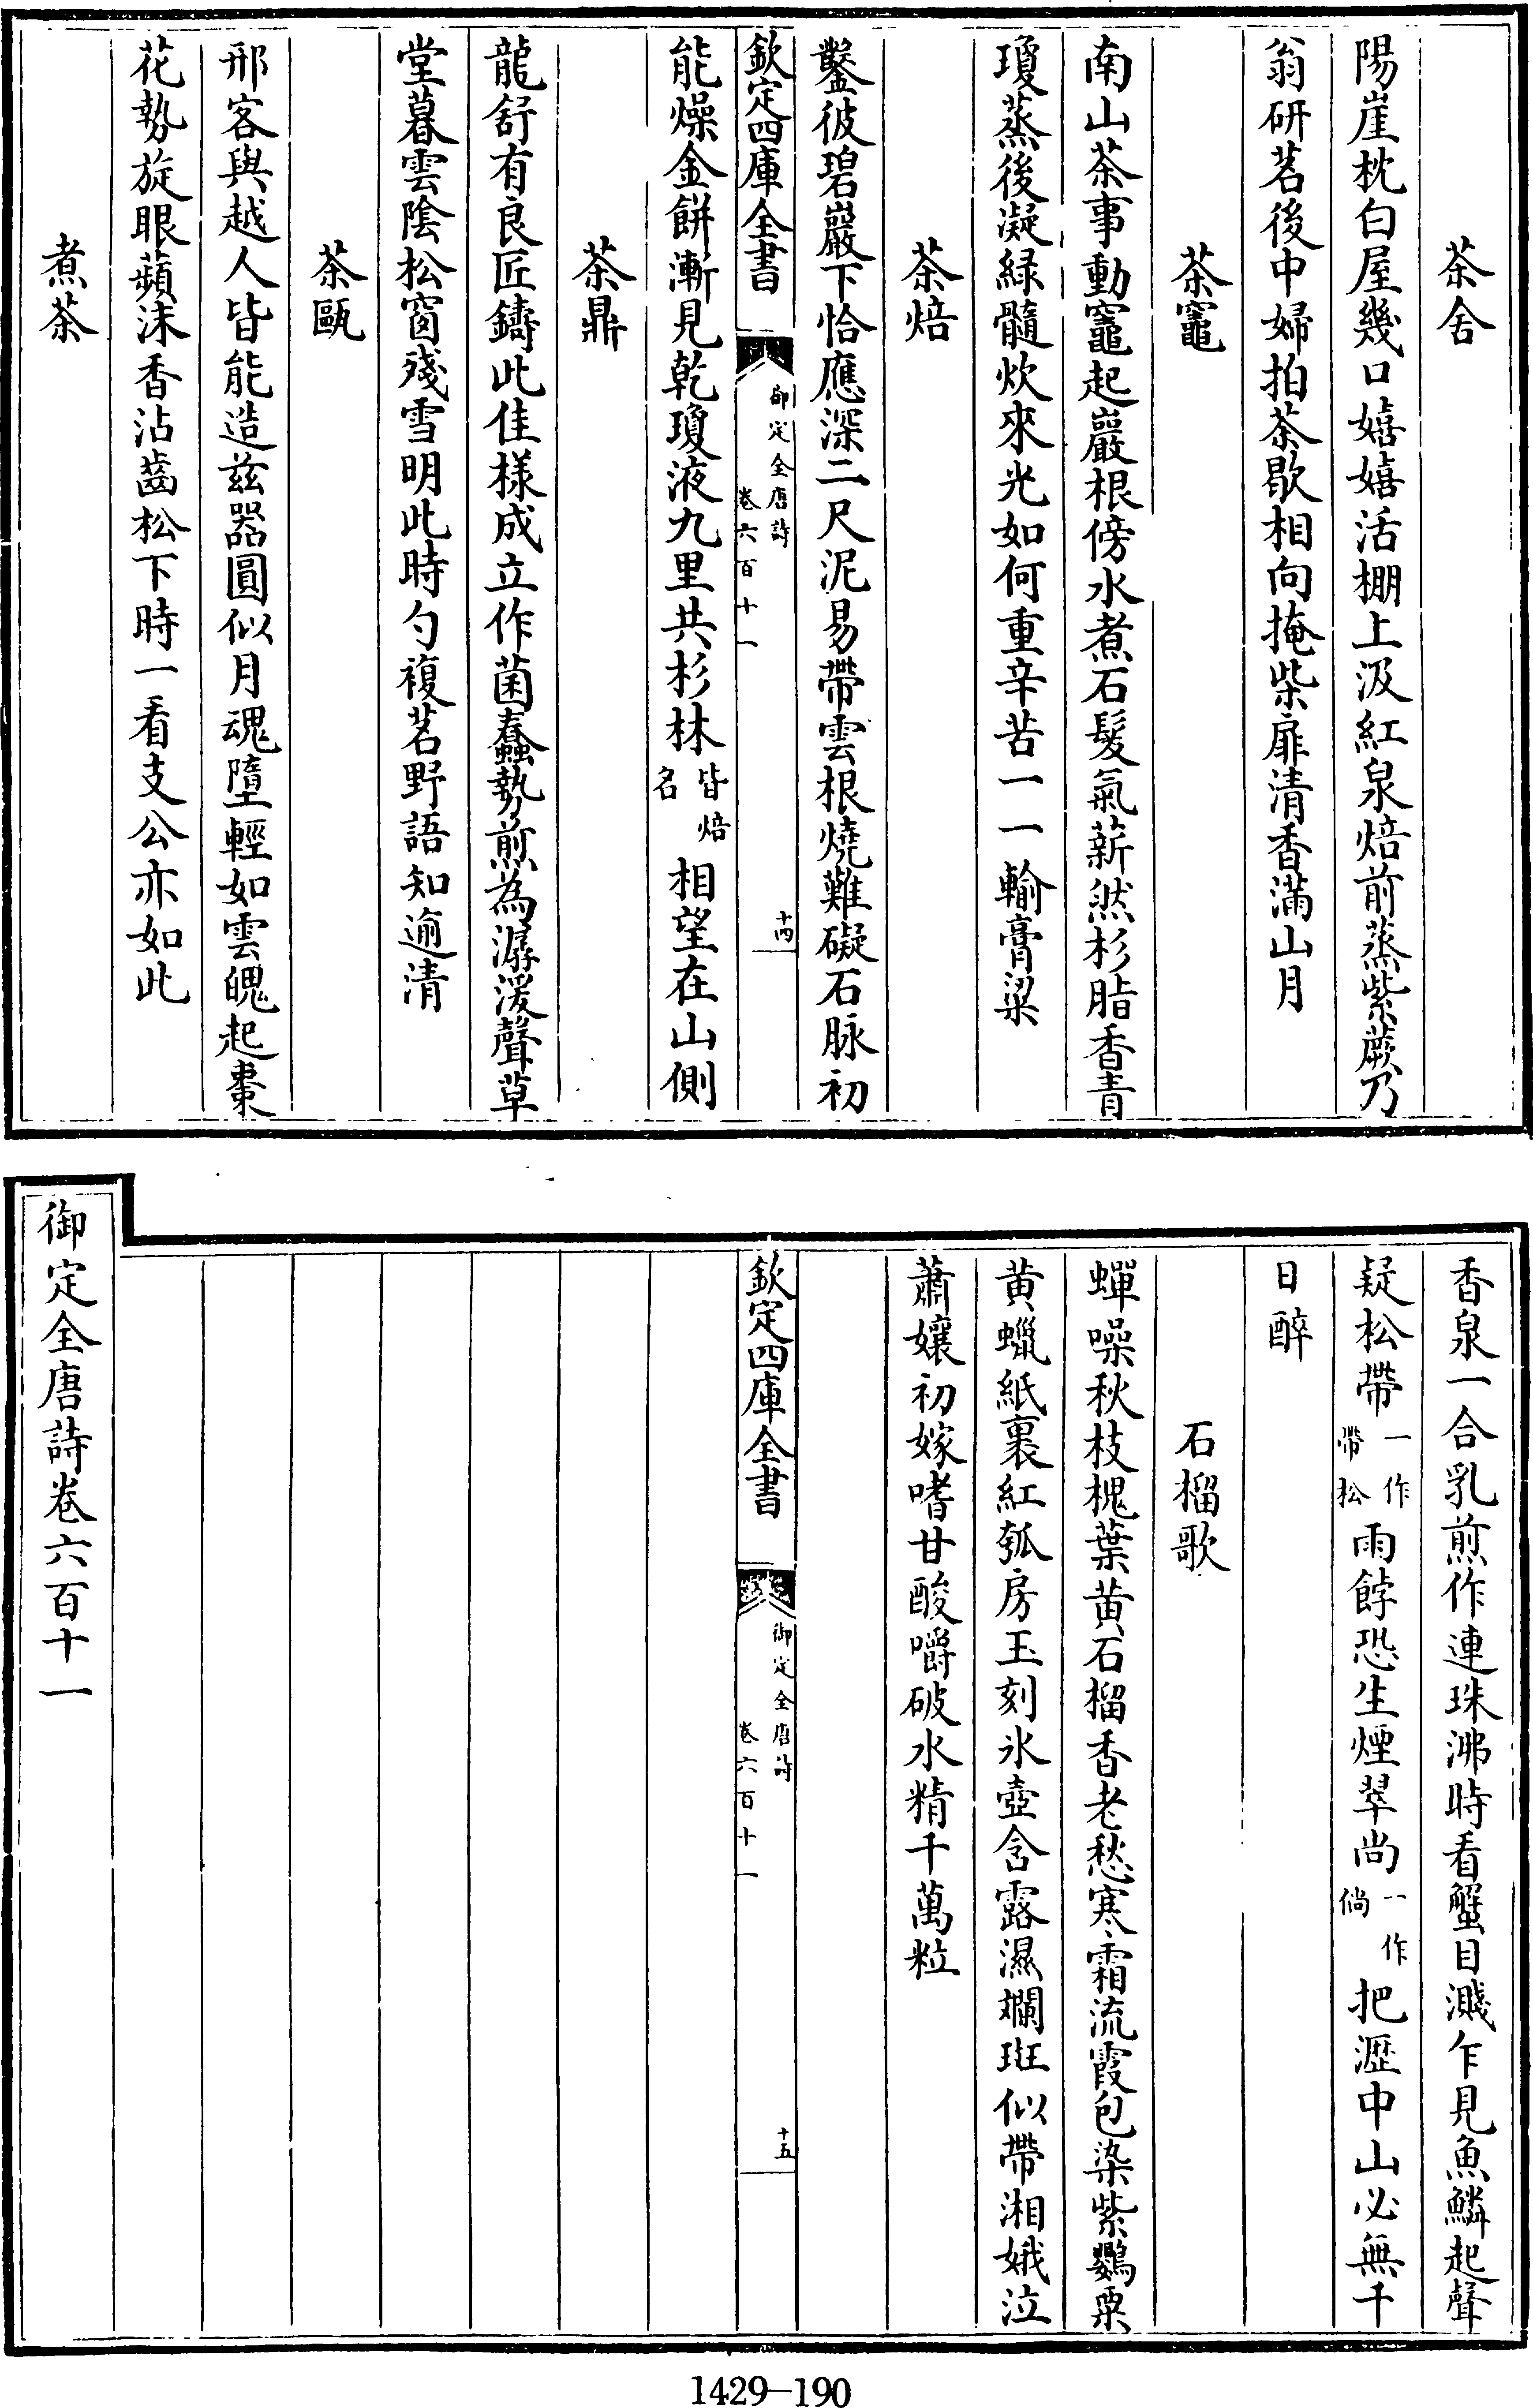 茶舍
陽崖枕白屋幾口嬉嬉活棚上汲紅泉焙前蒸紫蕨乃
翁研茗後中婦拍茶歇相向掩柴扉清香滿山月
茶竈
南山茶事動竈起巖根傍水煮石髮氣薪然杉脂香青
瓊蒸後凝緑髓炊來光如何重辛苦一一輸膏粱
茶焙
鑿彼碧巖下恰應深二尺泥易帶雲根燒難礙石脉初
欽定四庫全書
御定全唐詩
卷六百十一
十四
能燥金餅漸見乾瓊液九里共杉林皆焙名相望在山側
茶鼎
龍舒有良匠鑄此佳樣成立作菌蠢勢煎為潺湲聲草
堂暮雲陰松窗殘雪明此時勺複茗野語知逾清
茶甌
邢客與越人皆能造兹器圓似月魂墮輕如雲魄起棗
花勢旋眼蘋沫香沾齒松下時一看支公亦如此
煮茶
香泉一合乳煎作連珠沸時看蟹目濺乍見魚鱗起聲
疑松帶一作帶松雨餑恐生煙翠尚一作倘把瀝中山必無千
日醉
石榴歌
蟬噪秋枝槐葉黄石榴香老愁寒霜流霞包染紫鸚粟
黄蠟紙裹紅瓠房玉刻氷壺含露濕斕斑似帶湘娥泣
蕭孃初嫁嗜甘酸嚼破水精千萬粒
欽定四庫全書
御定全唐詩
卷六百十一
十五
御定全唐詩卷六百十一
1429-190